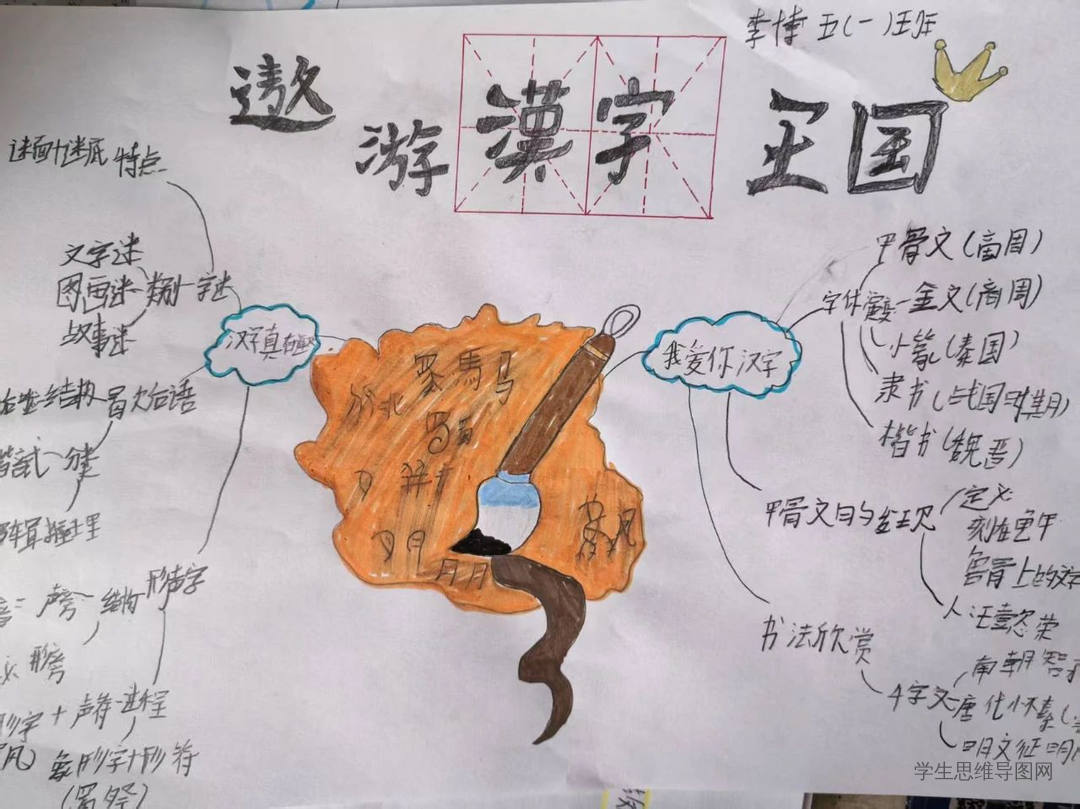 李博 五(一)班
遨游漢字王国
汉字真有趣
谜面+谜底 特点
文字谜
图画谜 类别 字谜
故事谜
结构 歇后语
谐音式 分类
声旁 结构 形声字
形旁
形字+声符 过程
象形字+形符
我爱你汉字
甲骨文(商周)
字体演变 金文(商周)
小篆(秦国)
隶书(战国时期)
楷书(魏晋)
甲骨文的发现 定义
刻在龟甲
兽骨上的文字
人 王懿荣
书法欣赏
千字文
南朝智永
唐代怀素
明文征明
馬 马
月 月
学生思维导图网